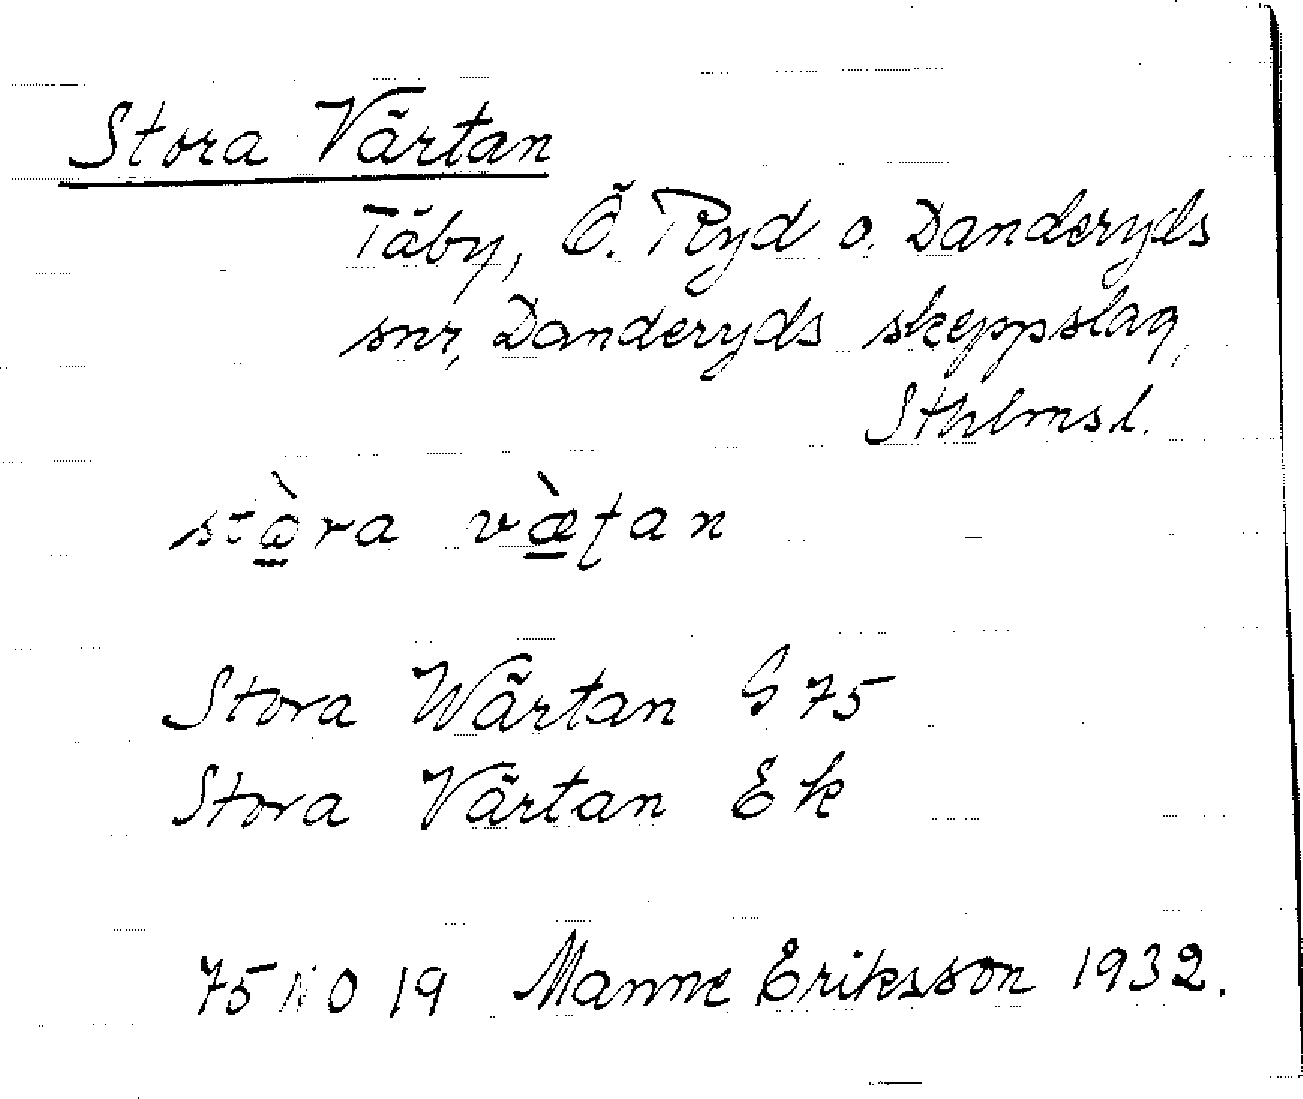 Stora Värtan
Täby, Ö. Ryd o. Danderyds
snr, Danderyds skeppslag,
Sthlmsl.
stò̲ra væ̲̀ʈan
Stora Wärtan G 75
Stora Värtan Ek
75 NO 19 Manne Eriksson 1932.